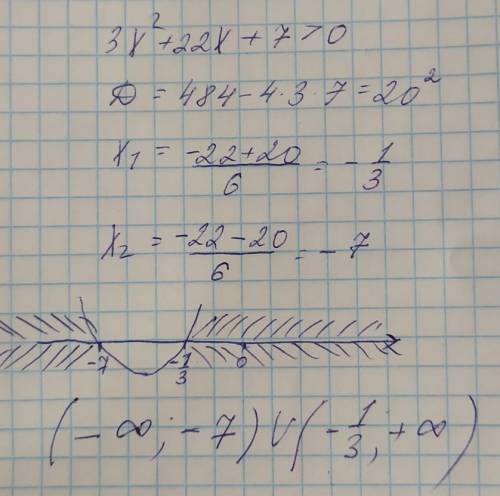 3x² + 22x + 7 > 0
D = 484 - 4 · 3 · 7 = 20²
x₁ = (-22+20)/6 = -1/3
x₂ = (-22-20)/6 = -7
-7 -1/3 0 x
(-∞; -7) ∪ (-1/3; +∞)